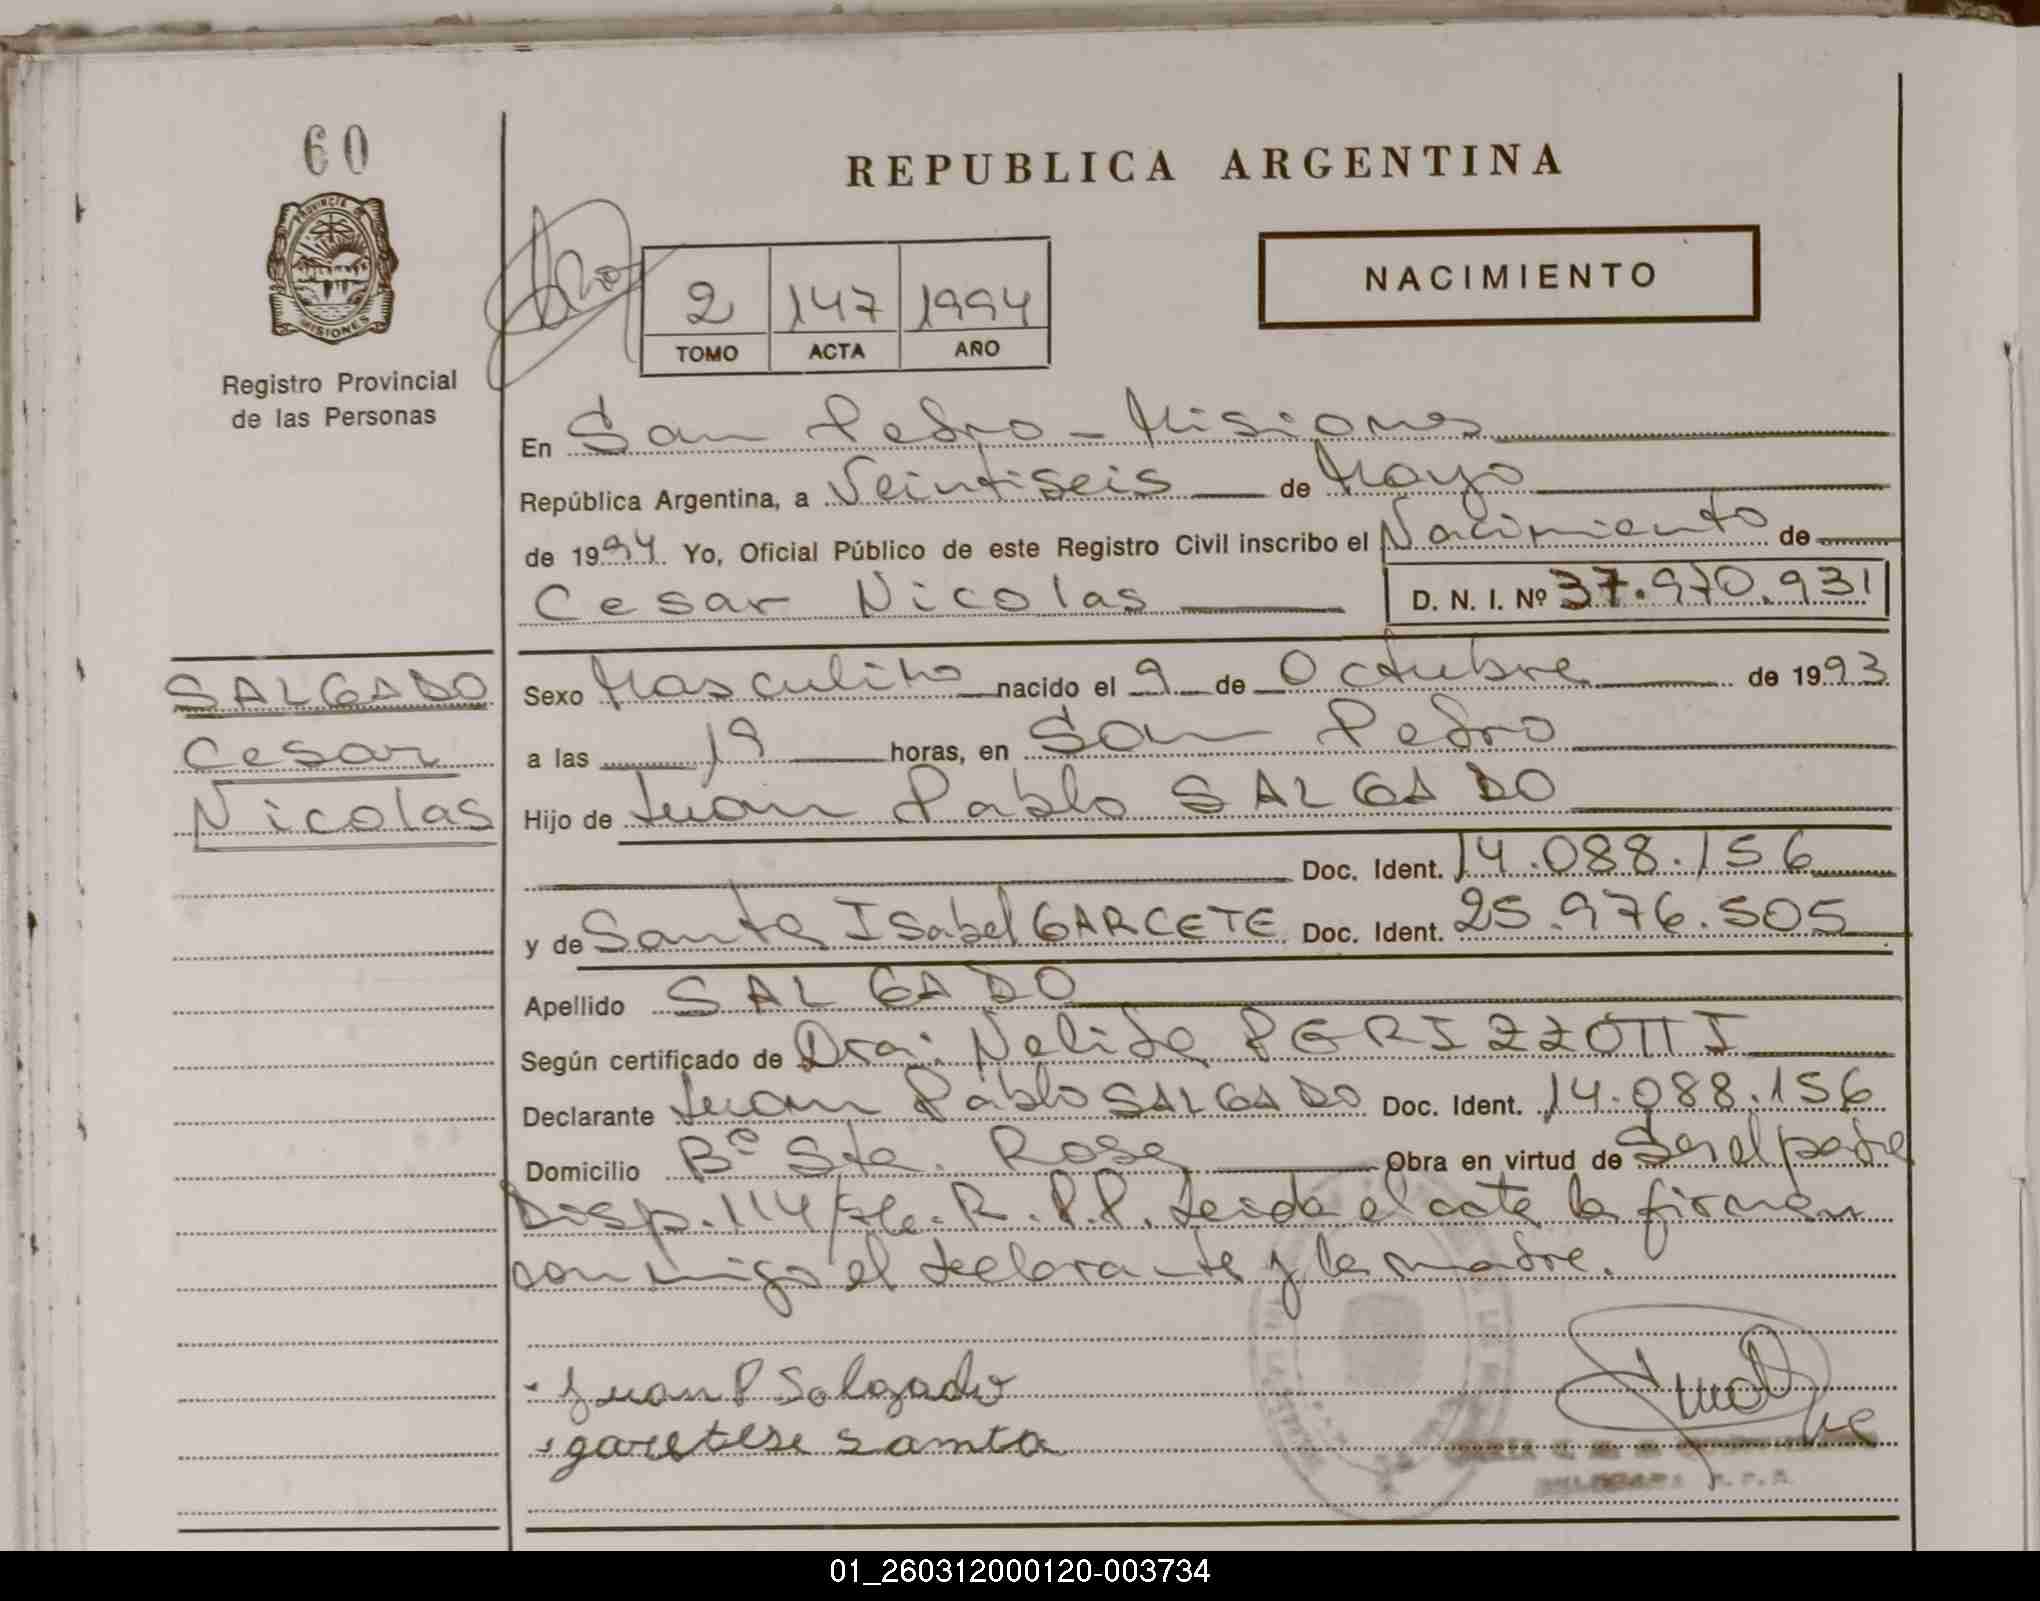 60
REPUBLICA ARGENTINA
PROVINCIA DE
MISIONES
Registro Provincial
de las Personas
2 147 1994
TOMO ACTA AÑO
NACIMIENTO
En San Pedro - Misiones
República Argentina, a Veintiseis de Mayo
de 1994. Yo, Oficial Público de este Registro Civil inscribo el Nacimiento de
Cesar Nicolas D. N. I. Nº 37.970.931
SALGADO
Cesar
Nicolas
Sexo Masculino nacido el 9 de Octubre de 1993
a las 19 horas, en San Pedro
Hijo de Juan Pablo SALGADO
Doc. Ident. 14.088.156
y de Santa Isabel GARCETE Doc. Ident. 25.976.505
Apellido SALGADO
Según certificado de Dra: Nelida PERIZZOTTI
Declarante Juan Pablo SALGADO Doc. Ident. 14.088.156
Domicilio Bº Sta. Rosa Obra en virtud de Ser el padre
Disp. 114 R.P.P. Leida el acta la firman
conmigo el declarante y la madre.
Juan P Salgado
Santa
01_260312000120-003734